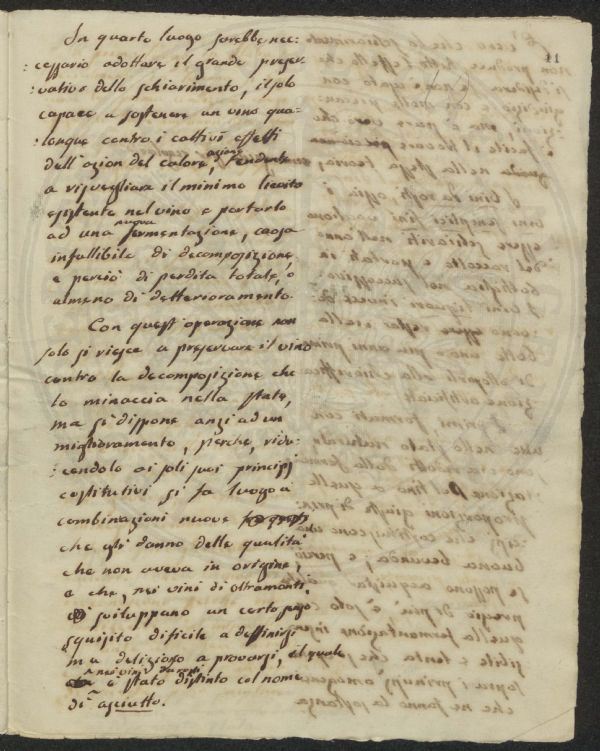 11
In quarto luogo sarebbe nec=
=cessario adottare il grande preser=
=vativo dello schiarimento, il solo
capace a sostenere un vino qua=
=lonque contro i cattivi effetti
dell'azion del calore, azione tendente
a risvegliara il minimo lievito
esistente nel vino e portarlo
ad una nuova fermentazione, causa
infallibile di decomposizione,
e perciò di perdita totale, o
almeno di detterioramento.
Con quest'operazione non
solo si riesce a preservare il vino
contro la decomposizione che
lo minaccia nella state,
ma si dispone anzi ad un
miglioramento, perchè, ridu=
=cendolo ai soli suoi principj
costitutivi si fa luogo a
combinazioni nuove
che gli danno delle qualità
che non aveva in origine,
e che, nei vini di oltramonti,
sviluppano un certo
squisito dificile a deffinirsi
ma delizioso a provarsi, il quale
nei vini
è stato distinto col nome
di asciutto.